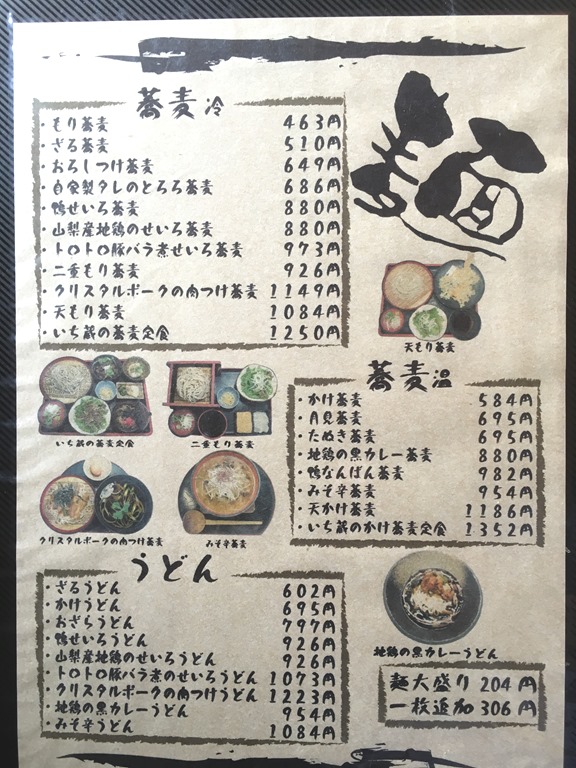 麺
蕎麦 冷
・もり蕎麦 463円
・ざる蕎麦 510円
・おろしつけ蕎麦 649円
・自家製タレのとろろ蕎麦 686円
・鴨せいろ蕎麦 880円
・山梨産地鶏のせいろ蕎麦 880円
・トロトロ豚バラ煮せいろ蕎麦 973円
・二重もり蕎麦 926円
・クリスタルポークの肉つけ蕎麦 1149円
・天もり蕎麦 1084円
・いち蔵の蕎麦定食 1250円
天もり蕎麦
いち蔵の蕎麦定食
二重もり蕎麦
クリスタルポークの肉つけ蕎麦
みそ辛蕎麦
蕎麦 温
・かけ蕎麦 584円
・月見蕎麦 695円
・たぬき蕎麦 695円
・地鶏の黒カレー蕎麦 880円
・鴨なんばん蕎麦 982円
・みそ辛蕎麦 954円
・天かけ蕎麦 1186円
・いち蔵のかけ蕎麦定食 1352円
うどん
・ざるうどん 602円
・かけうどん 695円
・おざらうどん 797円
・鴨せいろうどん 926円
・山梨産地鶏のせいろうどん 926円
・トロトロ豚バラ煮のせいろうどん 1073円
・クリスタルポークの肉つけうどん 1223円
・地鶏の黒カレーうどん 954円
・みそ辛うどん 1084円
地鶏の黒カレーうどん
麺大盛り 204円
一枚追加 306円